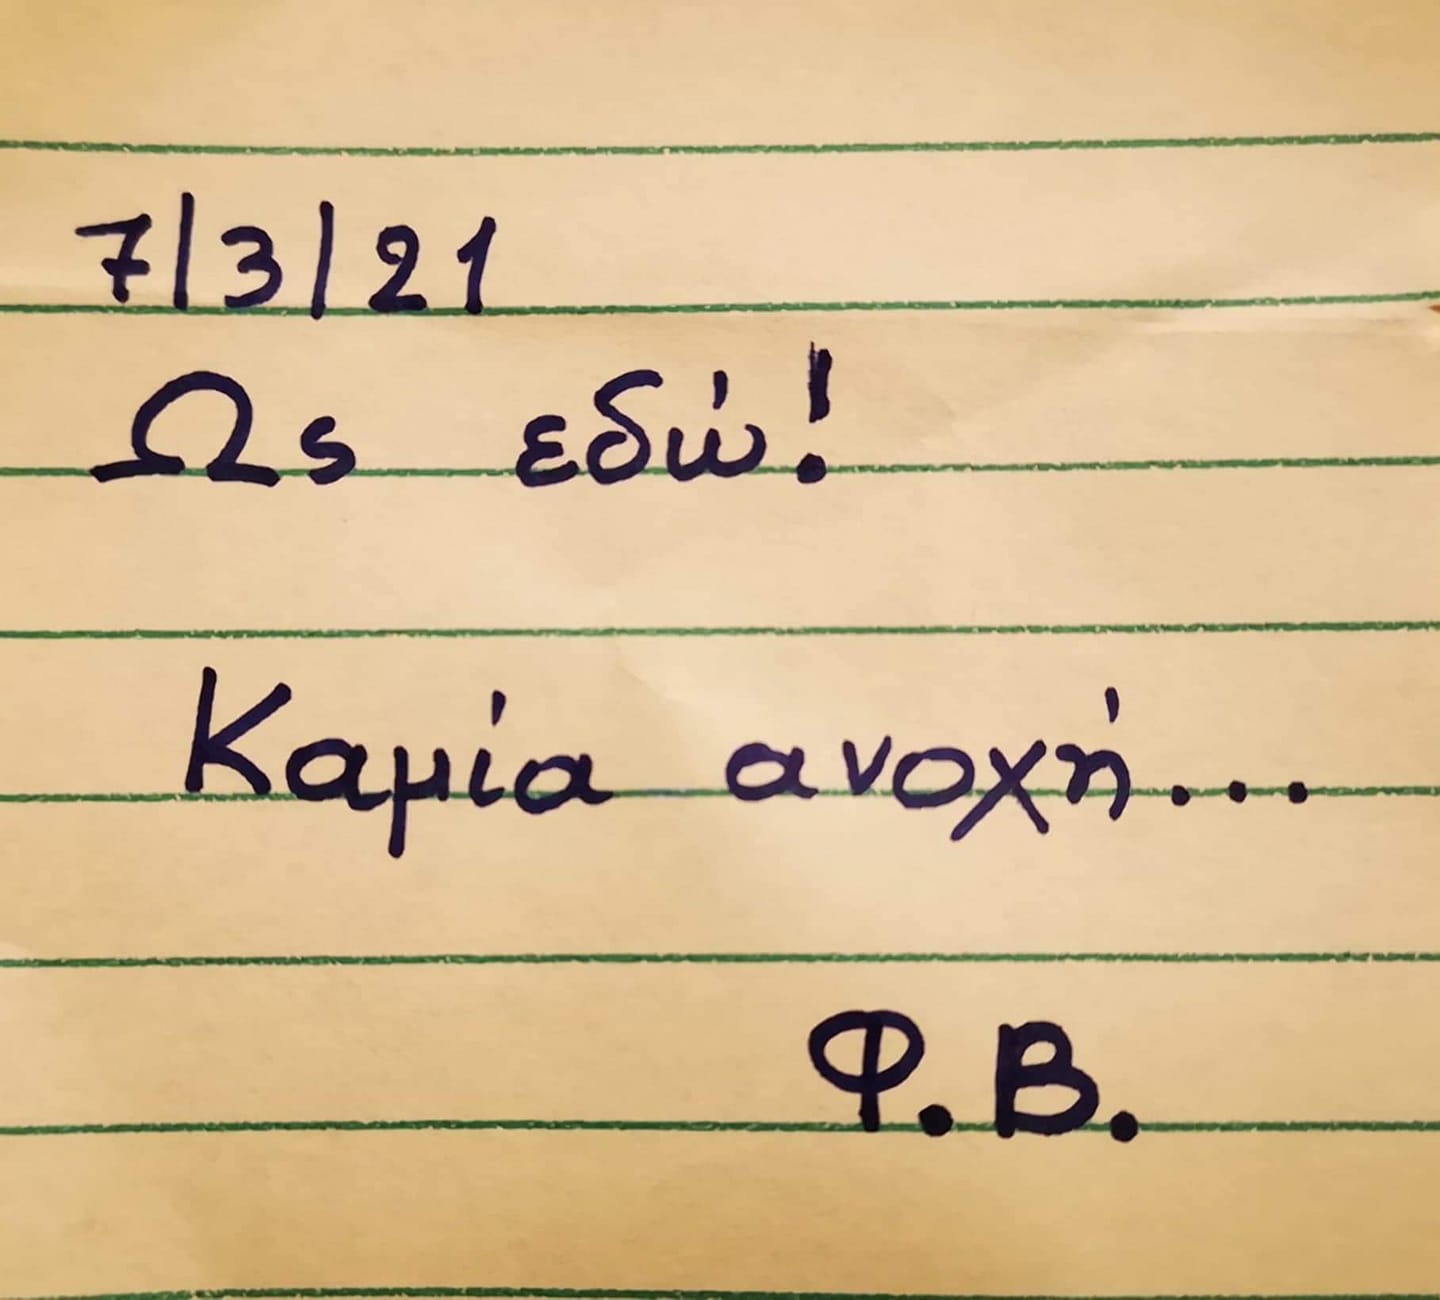 7/3/21
Ως εδώ!
Καμία ανοχή...
Φ.Β.